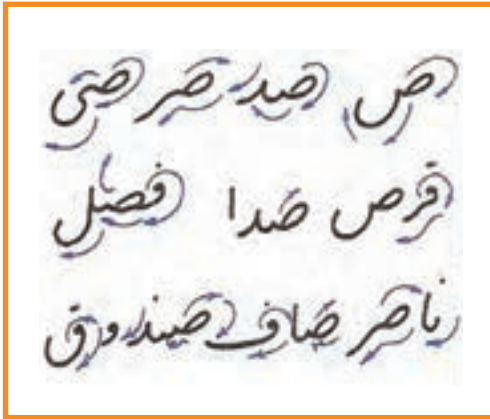 ص صد صر صی
قرص صدا فصل
ناصر صاف صندوق